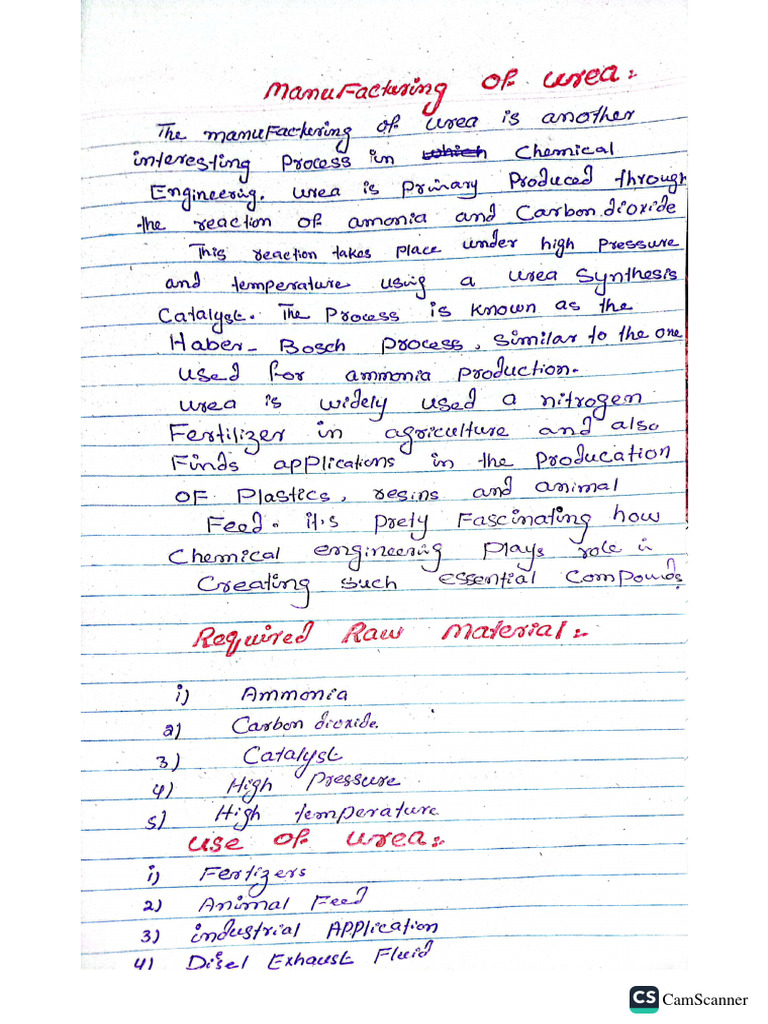 ManuFacturing OF urea:
The manuFacturing of urea is another
interesting Process in which Chemical
Engineering. urea is Primary Produced through
the reaction of amonia and Carbon.dioxide
This reaction takes place under high Pressure
and temperature using a urea Synthesis
Catalyst. The Process is known as the
Haber- Bosch Process, similar to the one
used for ammonia production.
urea is widely used a nitrogen
Fertilizer in agriculture and also
Finds applications in the Producation
OF Plastics, resins and animal
Feed. it's prety Fascinating how
Chemical engineering plays role in
Creating such essential Compounds
Required Raw Material:
i) Ammonia
2) Carbon dioxide.
3) Catalyst
4) High Pressure
5) High temperature
use of urea:
i) Fertizers
2) Animal Feed
3) industrial Application
4) Disel Exhaust Fluid
CS CamScanner